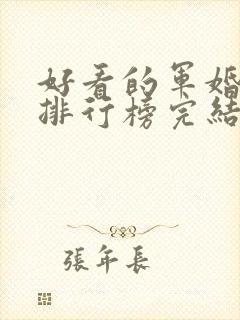 好看的军婚
排行榜完结
張年長